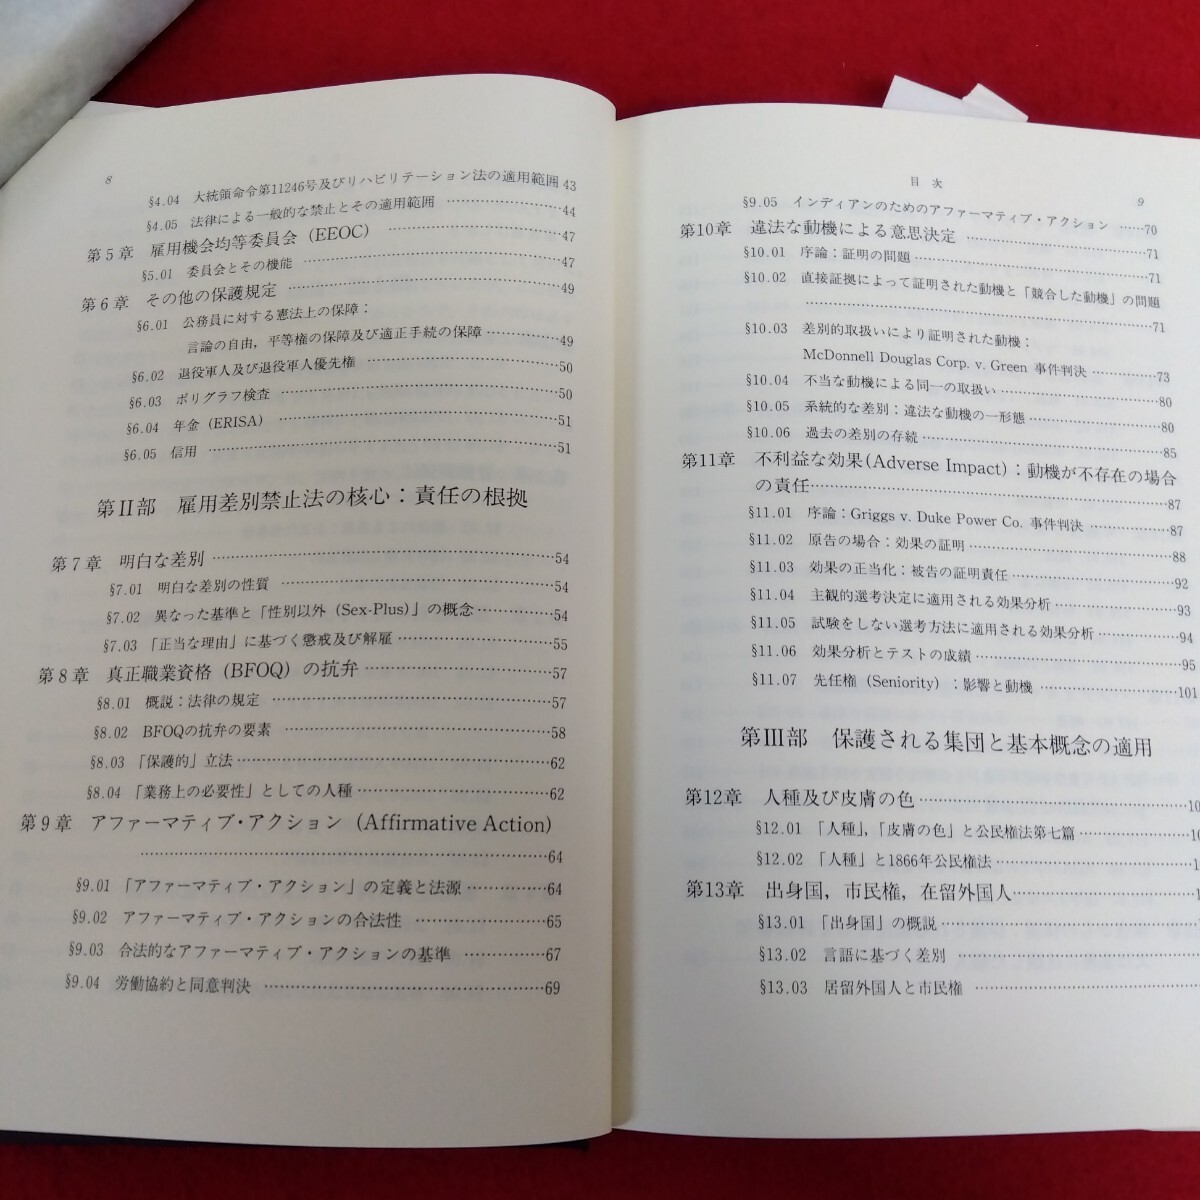 8
§4.04 大統領命令第11246号及びリハビリテーション法の適用範囲 43
§4.05 法律による一般的な禁止とその適用範囲 44
第5章 雇用機会均等委員会（EEOC） 47
§5.01 委員会とその機能 47
第6章 その他の保護規定 49
§6.01 公務員に対する憲法上の保障：
言論の自由，平等権の保障及び適正手続の保障 49
§6.02 退役軍人及び退役軍人優先権 50
§6.03 ポリグラフ検査 50
§6.04 年金（ERISA） 51
§6.05 信用 51
第II部 雇用差別禁止法の核心：責任の根拠
第7章 明白な差別 54
§7.01 明白な差別の性質 54
§7.02 異なった基準と「性別以外（Sex-Plus）」の概念 54
§7.03 「正当な理由」に基づく懲戒及び解雇 55
第8章 真正職業資格（BFOQ）の抗弁 57
§8.01 概説：法律の規定 57
§8.02 BFOQの抗弁の要素 58
§8.03 「保護的」立法 62
§8.04 「業務上の必要性」としての人種 62
第9章 アファーマティブ・アクション（Affirmative Action）
64
§9.01 「アファーマティブ・アクション」の定義と法源 64
§9.02 アファーマティブ・アクションの合法性 65
§9.03 合法的なアファーマティブ・アクションの基準 67
§9.04 労働協約と同意判決 69
目 次 9
§9.05 インディアンのためのアファーマティブ・アクション 70
第10章 違法な動機による意思決定 71
§10.01 序論：証明の問題 71
§10.02 直接証拠によって証明された動機と「競合した動機」の問題
71
§10.03 差別的取扱いにより証明された動機：
McDonnell Douglas Corp. v. Green 事件判決 73
§10.04 不当な動機による同一の取扱い 80
§10.05 系統的な差別：違法な動機の一形態 80
§10.06 過去の差別の存続 85
第11章 不利益な効果（Adverse Impact）：動機が不存在の場合
の責任 87
§11.01 序論：Griggs v. Duke Power Co. 事件判決 87
§11.02 原告の場合：効果の証明 88
§11.03 効果の正当化：被告の証明責任 92
§11.04 主観的選考決定に適用される効果分析 93
§11.05 試験をしない選考方法に適用される効果分析 94
§11.06 効果分析とテストの成績 95
§11.07 先任権（Seniority）：影響と動機 101
第III部 保護される集団と基本概念の適用
第12章 人種及び皮膚の色
§12.01 「人種」，「皮膚の色」と公民権法第七篇
§12.02 「人種」と1866年公民権法
第13章 出身国，市民権，在留外国人
§13.01 「出身国」の概説
§13.02 言語に基づく差別
§13.03 居留外国人と市民権